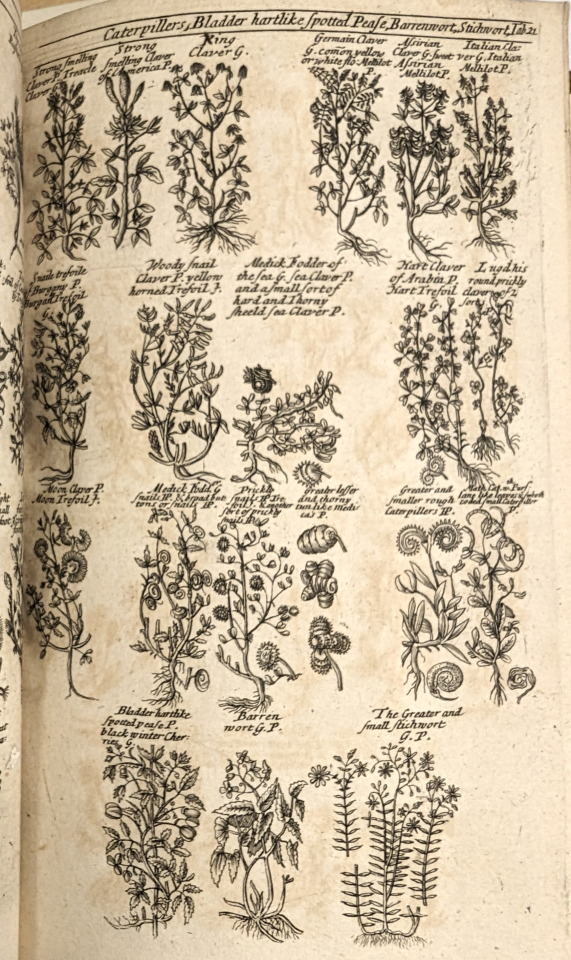 Caterpillers, Bladder hartlike spotted Pease, Barrenwort, Stichwort, Tab. 21
Strong smelling
Claver P Treacle
Claver G.
Strong
smelling Claver
of America P.
King
Claver G.
Germain Claver
G. comon yellow
or white flo: Mellilot
P.
Assirian
Claver G. sweet
Assirian
Mellilot P.
Italian Cla:
ver G. Italian
Mellilot P.
Snaile trefoile
of Burgony P.
Burgan Trefoil
G.
Woody snail
Claver P. yellow
horned Trefoil J.
Medick Fodder of
the sea G. sea Claver P.
and a small sort of
hard and Thorny
sheeld sea Claver P.
Hart Claver
of Arabia P.
Hart Trefoil
G.
Lugd his
round prickly
claver of 2
sorts P.
Moon Claver P.
Moon Trefoil J.
Medick Fodd. G
snails P. & broad but
tons or snails P.
Prickly
snails P. Tre
foil J. & another
sort of prickly
snails P.
Greater lesser
and thorny
tun like medi
ca's P.
Greater and
smaller rough
Caterpillers P.
Math. Cat. w. Purs
lang like leaves &
small Caterpiller
P.
Bladder hartlike
spotted pease P.
black winter Cher:
ries G.
Barren
wort G. P.
The Greater and
small stichwort
G. P.